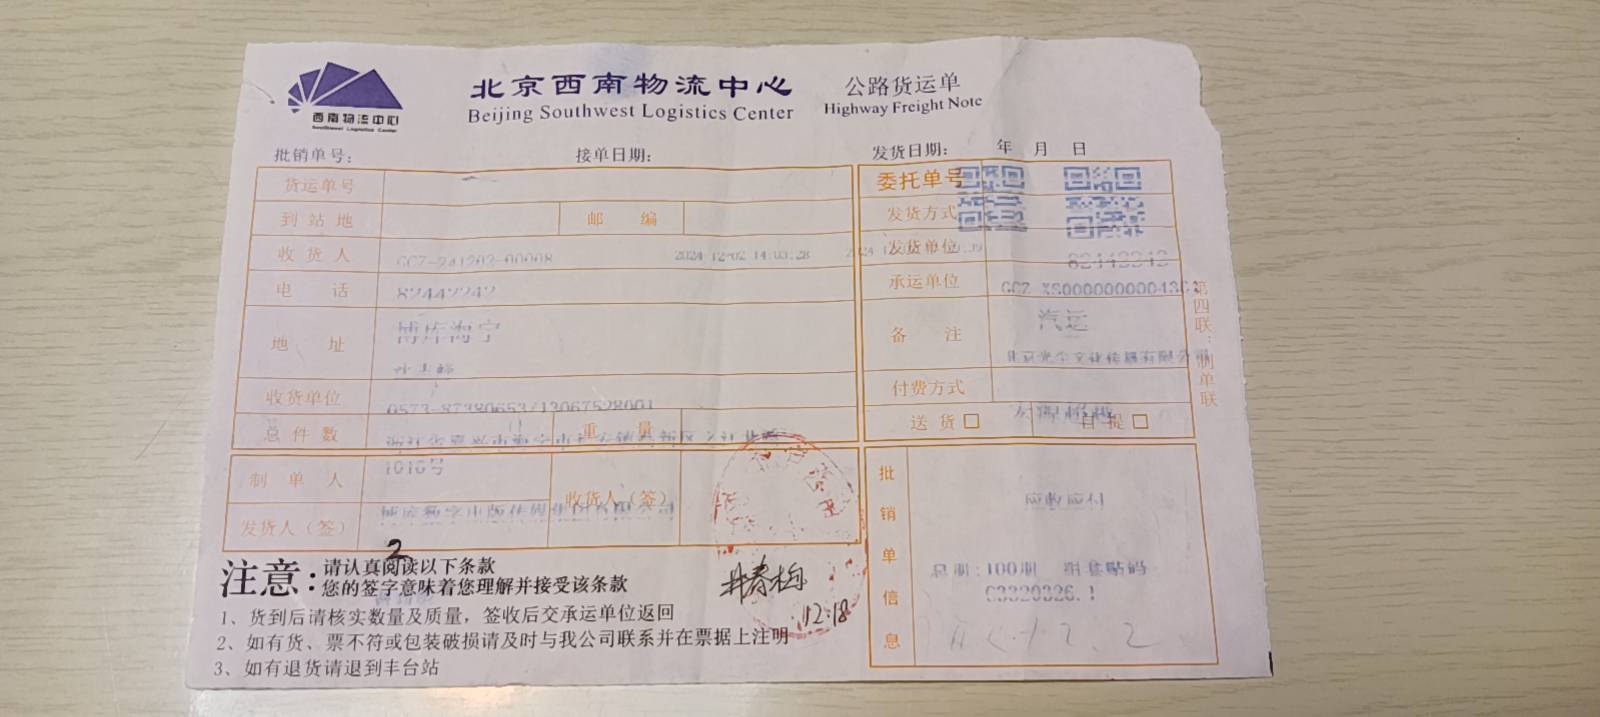 西南物流中心
Southwest Logistics Center
北京西南物流中心
Beijing Southwest Logistics Center
公路货运单
Highway Freight Note
批销单号:
接单日期:
发货日期: 年 月 日
货运单号
委托单号
到站地
邮编
发货方式
收货人
GCZ-241202-00008
2024-12-02 14:03:28
发货单位
82442242
电话
82442242
承运单位
地址
博库海宁
备注
汽运
收货单位
0573-87380653/13067528001
付费方式
总件数
重量
送货 □
自提 □
1016号
制单人
发货人(签)
收货人(签)
批销单信息
应收应付
总期:100期
63320326.1
第四联:制单联
2
注意:
请认真阅读以下条款
您的签字意味着您理解并接受该条款
1、货到后请核实数量及质量,签收后交承运单位返回
2、如有货、票不符或包装破损请及时与我公司联系并在票据上注明
3、如有退货请退到丰台站
井春梅
12.18